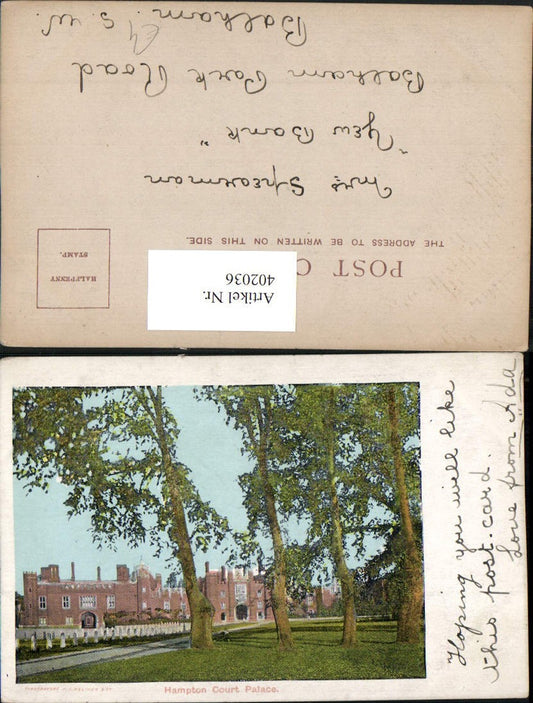 POST C
THE ADDRESS TO BE WRITTEN ON THIS SIDE.
HALFPENNY
STAMP.
Artikel Nr.
402036
Mrs Spearman
"Yew Bank"
Balham Park Road
Balham. S.W
Hoping you will like
this post-card.
Love from Ada
Hampton Court Palace.